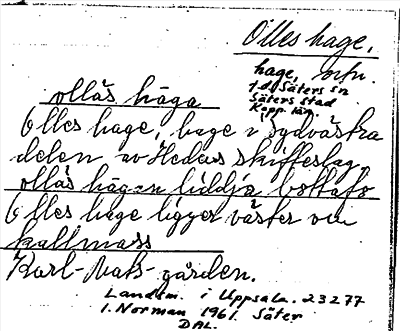 Olles hage,
hage, ortn.
f.d. Säters sn
Säters stad
Kopp. län.
ollas haga
Olles hage, hage i sydvästra
delen av Hedens skifteslag.
ollas hagan liddja
Olles hage ligger väster om
kallmass
Karl-Mats-gården.
Landsm. i Uppsala. 23277
I. Norman 1961. Säter
DAL.